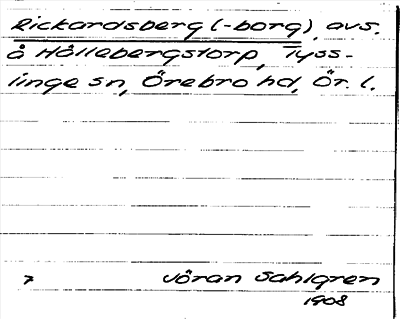 Rickardsberg (-borg), avs.
å Hållebergstorp, Tyss-
linge sn, Örebro hd, Ör. l.
7 Jöran Sahlgren
1908